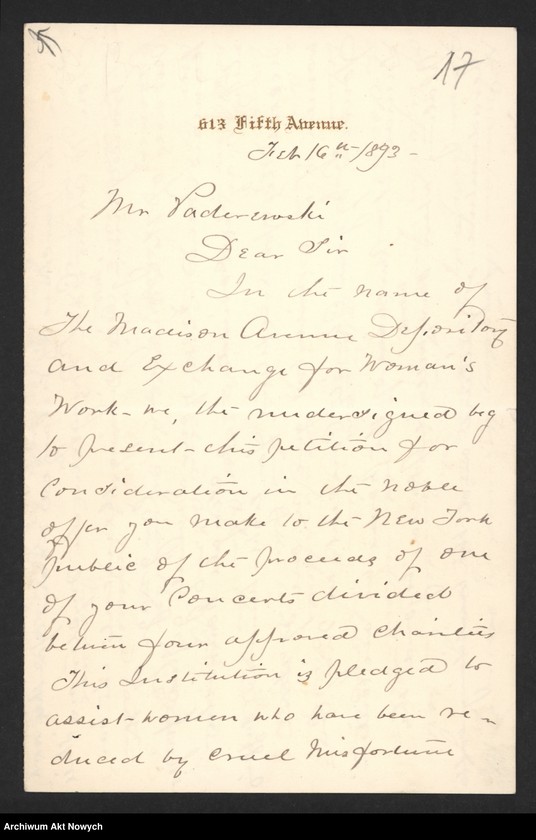 17
613 Fifth Avenue.
Feb 16th 1893 -
Mr Paderewski
Dear Sir
In the name of
The Madison Avenue Depository
and Exchange for Woman's
Work - we, the undersigned beg
to present - this petition for
Consideration in the noble
offer you make to the New York
public of the proceeds of one
of your Concerts divided
between four approved charities
This Institution is pledged to
assist - women who have been re-
duced by cruel misfortune
Archiwum Akt Nowych